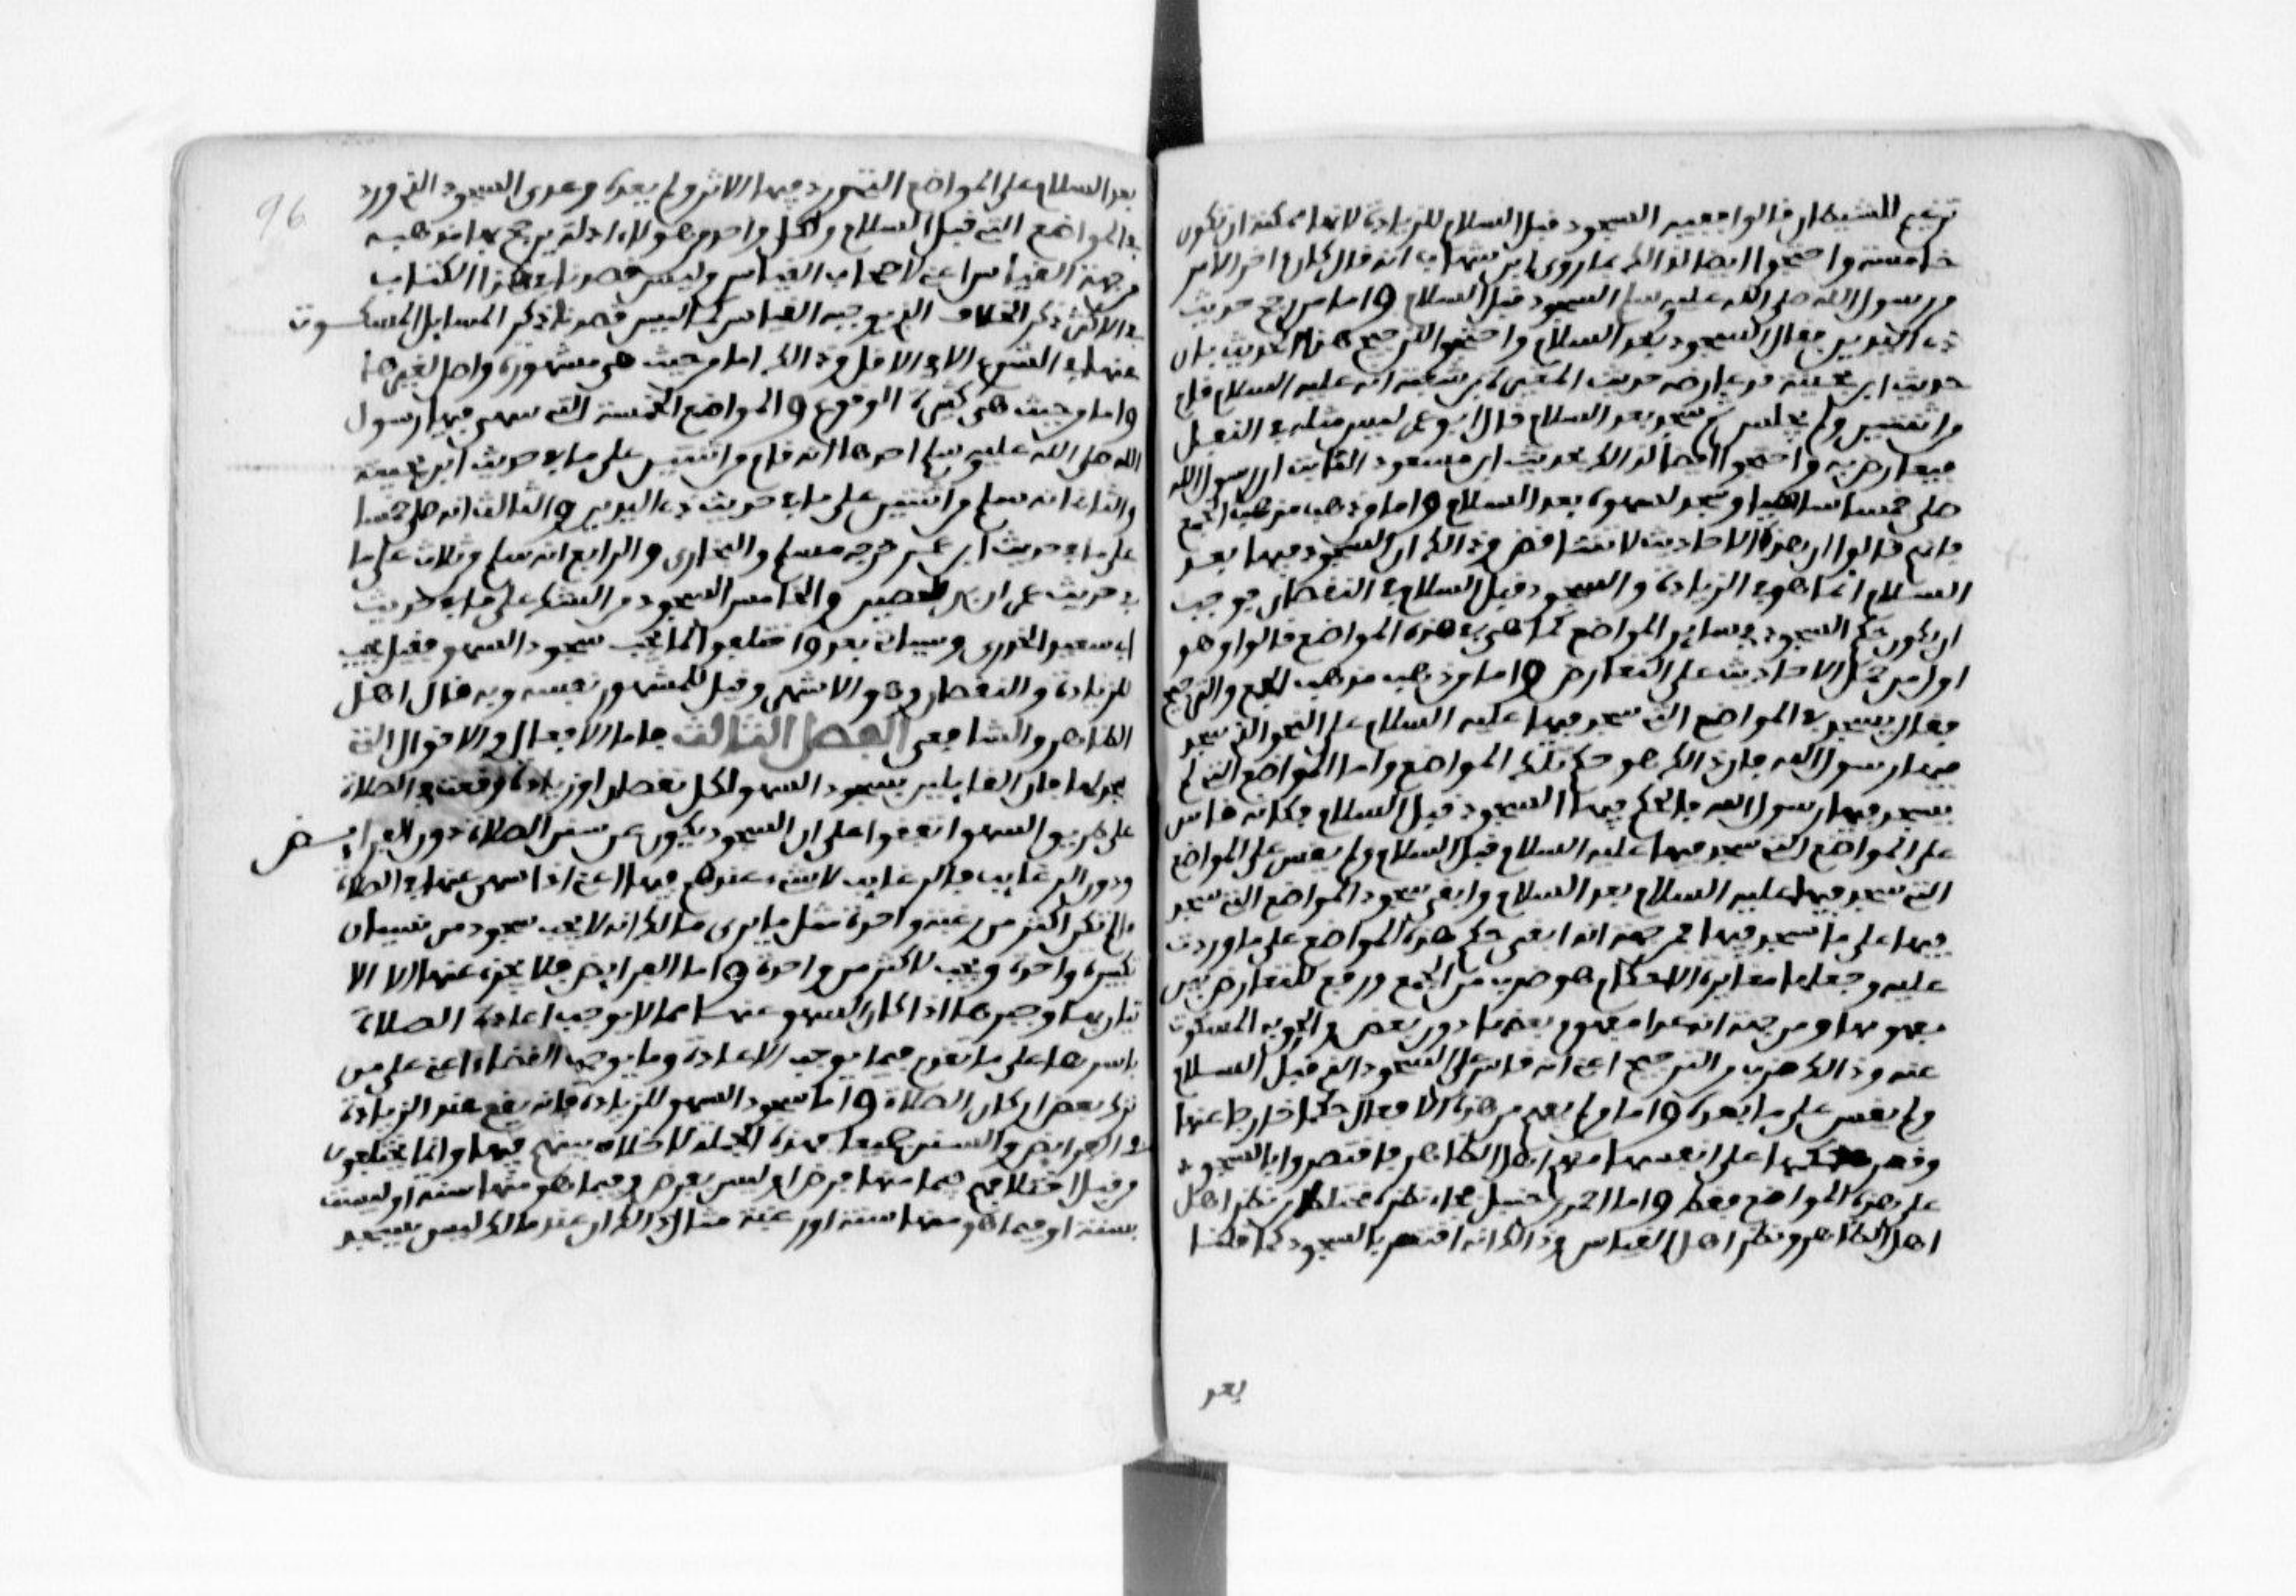 ترغيم للشيطان قالوا ففيه السجود قبل السلام للزيادة لانها ممكنة ان تكون
خامسة واحتجوا ايضا لذالك بما روى ابن شهاب انه قال كان اخر الامر
من رسول الله صلى الله عليه وسلم السجود قبل السلام واما من رجح حديث
ذي اليدين فقال السجود بعد السلام واحتجوا لترجيح هذا الحديث بان
حديث ابن بحينة قد عارضه حديث المغيرة بن شعبة انه عليه السلام قام
من اثنتين ولم يجلس ثم سجد بعد السلام قال ابو عمر ليس مثله في النقل
فيعارض به واحتجوا ايضا لذالك بحديث ابن مسعود الثابت ان رسول الله
صلى خمسا ساهيا وسجد لسهوه بعد السلام واما من ذهب مذهب الجمع
فانهم قالوا ان هذه الاحاديث لا تتناقض وذالك ان السجود فيها بعد
السلام انما هو في الزيادة والسجود قبل السلام في النقصان فوجب
ان يكون حكم السجود في ساير المواضع كما هو في هذه المواضع قالوا وهو
اولى من حمل الاحاديث على التعارض واما من ذهب مذهب الجمع والترجيح
فقال يسجد في المواضع التي سجد فيها عليه السلام على النحو الذي سجد
فيها رسول الله فان ذالك هو حكم تلك المواضع واما المواضع التي لم
يسجد فيها رسول الله فالحكم فيها السجود قبل السلام فكانه قاس
على المواضع التي سجد فيها عليه السلام قبل السلام ولم يقس على المواضع
التي سجد فيها عليه السلام بعد السلام وابقى سجود المواضع التي سجد
فيها على ما سجد فيها فمن جهة انه ابقى حكم هذه المواضع على ما وردت
عليه وجعلها متغايرة الاحكام هو ضرب من الجمع ورفع للتعارض بين
مفهومها ومن جهة انه عدا مفهوم بعضها دون بعض والحق به المسكوت
عنه وذالك ضرب من الترجيح اعني انه قاس على السجود الذي قبل السلام
ولم يقس على ما بعده واما من لم يفهم من هذه الافعال حكما خارجا عنها
وقصر حكمها على انفسها منهم اهل الظاهر فاقتصروا بالسجود
على هذه المواضع فقط واما احمد بن حنبل فجاء نظره مختلطا من نظر اهل
اهل الظاهر ونظر اهل القياس وذالك انه اقتصر بالسجود كما قلنا
بعد
96
بعد السلام على المواضع التي ورد فيها الاثر ولم يعده وعدى السجود الذي ورد
في المواضع التي قبل السلام ولكل واحد من هولاء ادلة يرجح بها مذهبه
من جهة القياس اعني لاصحاب القياس وليس قصدنا في هذا الكتاب
في الاكثر ذكر الخلاف الذي يوجبه القياس كما ليس قصدنا ذكر المسايل المسكوت
عنها في الشرع الا في الاقل وذالك اما من حيث هي مشهورة واصل لغيرها
واما من حيث هي كثيرة الوقوع والمواضع الخمسة التي سهى فيها رسول
الله صلى الله عليه وسلم احدها انه قام من اثنتين على ما في حديث ابن بحينة
والثاني انه سلم من اثنتين على ما في حديث ذي اليدين والثالث انه صلى خمسا
على ما في حديث ابن عمر خرجه مسلم والبخاري والرابع انه سلم من ثلاث على ما
في حديث عمران بن الحصين والخامس السجود من الشك على ما في حديث
ابي سعيد الخدري وسياتي بعد واختلفوا لما يجب سجود السهو فقيل يجب
للزيادة والنقصان وهو الاشهر وقيل للسهو نفسه وبه قال اهل
الظاهر والشافعي الفصل الثالث فاما الافعال والاقوال التي
يسجد لها فان القايلين بسجود السهو لكل نقصان او زيادة وقعت في الصلاة
على طريق السهو اتفقوا على ان السجود يكون عن سنن الصلاة دون الفرايض
ودون الرغايب فالرغايب لا شيء عندهم فيها اعني اذا سهى عنها في الصلاة
ما لم تكن اكثر من رغيبة واحدة مثل ما يرى مالك انه لا يجب سجود من نسيان
تكبيرة واحدة ويجب لاكثر من واحدة واما الفرايض فلا يجزء عنها الا الا
تيان بها وجبرها اذا كان السهو عنها مما لا يوجب اعادة الصلاة
باسرها على ما تقدم فيما يوجب الاعادة وما يوجب القضاء اعني على من
ترك بعض اركان الصلاة واما سجود السهو للزيادة فانه يقع عند الزيادة
في الفرايض والسنن جميعا فهذه الجملة لا خلاف بينهم فيها وانما يختلفون
من قبل اختلافهم فيما منها فرض او ليس بفرض وفيما هو منها سنة او ليست
بسنة او فيما هو منها سنة او رغيبة مثال ذالك ان عند مالك ليس يسجد